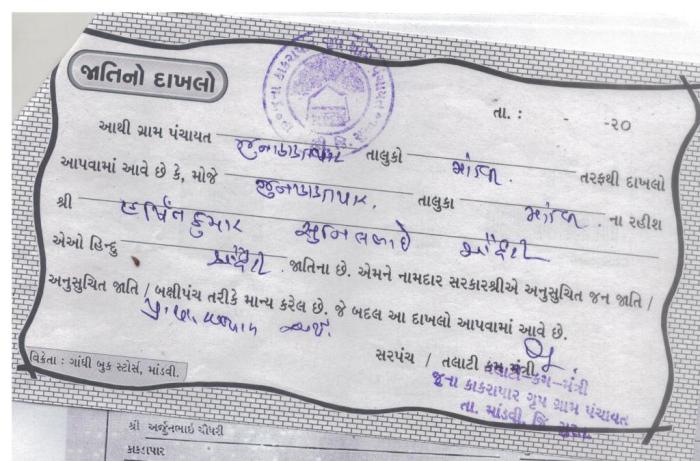 જાતિનો દાખલો
તા. : - -૨૦
આથી ગ્રામ પંચાયત જુનાકાકરાપાર તાલુકો માંડવી. તરફથી દાખલો
આપવામાં આવે છે કે, મોજે જુનાકાકરાપાર. તાલુકા માંડવી. ના રહીશ
શ્રી હર્ષિતકુમાર સુનિલભાઈ ચૌધરી
એઓ હિન્દુ ચૌધરી જાતિના છે. એમને નામદાર સરકારશ્રીએ અનુસુચિત જન જાતિ /
અનુસુચિત જાતિ / બક્ષીપંચ તરીકે માન્ય કરેલ છે. જે બદલ આ દાખલો આપવામાં આવે છે.
સરપંચ / તલાટી કમ મંત્રી
તલાટી-કમ-મંત્રી
જુના કાકરાપાર ગૃપ ગ્રામ પંચાયત
તા. માંડવી, જિ. સુરત
વિક્રેતા : ગાંધી બુક સ્ટોર્સ, માંડવી.
શ્રી અર્જુનભાઇ ચૌધરી
કાકડાપાર